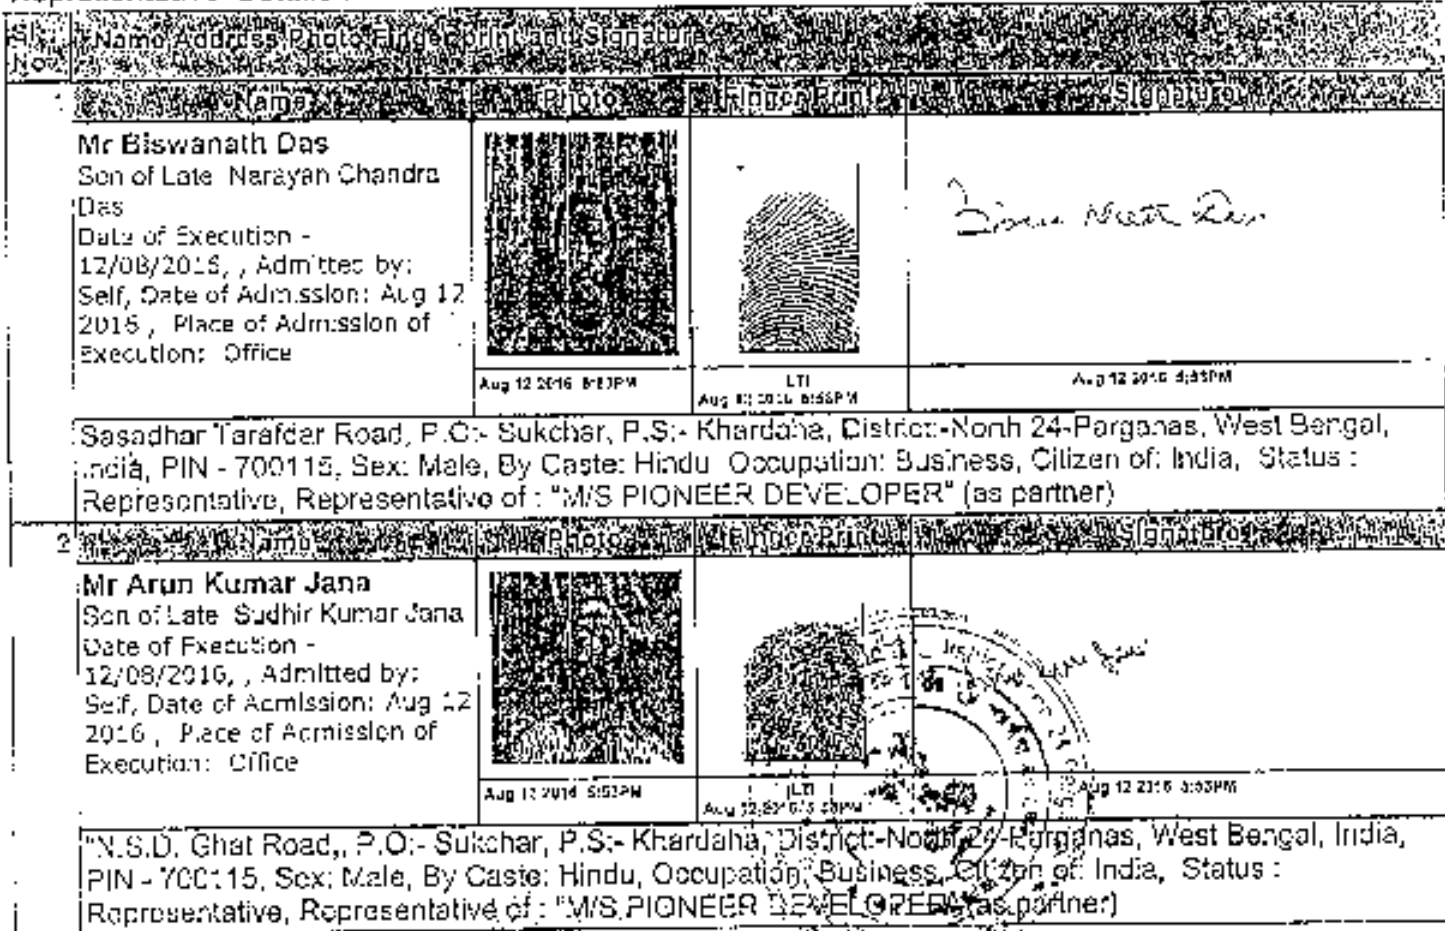 Sl. No.
Name Address Photo Finger print and Signature
1
Name Photo Finger Print Signature
Mr Biswanath Das
Son of Late Narayan Chandra
Das
Date of Execution -
12/08/2016, , Admitted by:
Self, Date of Admission: Aug 12
2016 , Place of Admission of
Execution: Office
Aug 12 2016
LTI
Aug 12 2016 5:53PM
Sasadhar Tarafdar Road, P.O:- Sukchar, P.S:- Khardaha, District:-North 24-Parganas, West Bengal,
India, PIN - 700115, Sex: Male, By Caste: Hindu, Occupation: Business, Citizen of: India, Status :
Representative, Representative of : "M/S PIONEER DEVELOPER" (as partner)
2
Name Photo Finger Print Signature
Mr Arun Kumar Jana
Son of Late Sudhir Kumar Jana
Date of Execution -
12/08/2016, , Admitted by:
Self, Date of Admission: Aug 12
2016 , Place of Admission of
Execution: Office
Aug 12 2016 5:53PM
LTI
Aug 12 2016 5:53PM
"N.S.D. Ghat Road,, P.O:- Sukchar, P.S:- Khardaha, District:-North 24-Parganas, West Bengal, India,
PIN - 700115, Sex: Male, By Caste: Hindu, Occupation: Business, Citizen of: India, Status :
Representative, Representative of : "M/S PIONEER DEVELOPER" (as partner)